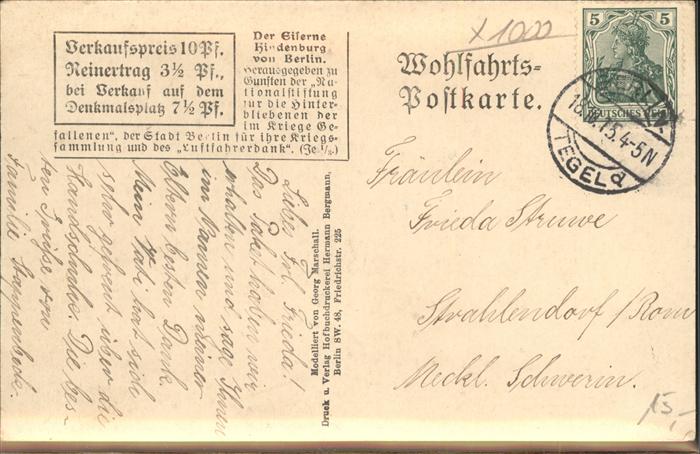 Verkaufspreis 10 Pf.
Reinertrag 3½ Pf.,
bei Verkauf auf dem
Denkmalsplatz 7½ Pf.
Der Eiserne
Hindenburg
von Berlin.
Herausgegeben zu
Gunsten der „Na-
tionalstiftung
für die Hinter-
bliebenen der
im Kriege Ge-
fallenen", der Stadt Berlin für ihre Kriegs-
sammlung und des „Luftfahrerdank".
x 1000
Wohlfahrts-
Postkarte.
5 5
DEUTSCHES REICH
BERLIN-
15.4-5N
TEGEL a
Liebes Frl. Frieda!
Das Paket haben wir
erhalten und sage Ihnen
im Namen meiner
Eltern besten Dank.
Mein hat sich
sehr gefreut über die
Die bes-
ten Grüße von
Familie
Modelliert von Georg Marschall.
Druck u. Verlag Hofbuchdruckerei Hermann Bergmann,
Berlin SW. 48, Friedrichstr. 225
Fräulein
Frieda Struwe
Strahlendorf /Rom
Meckl. Schwerin.
15,-